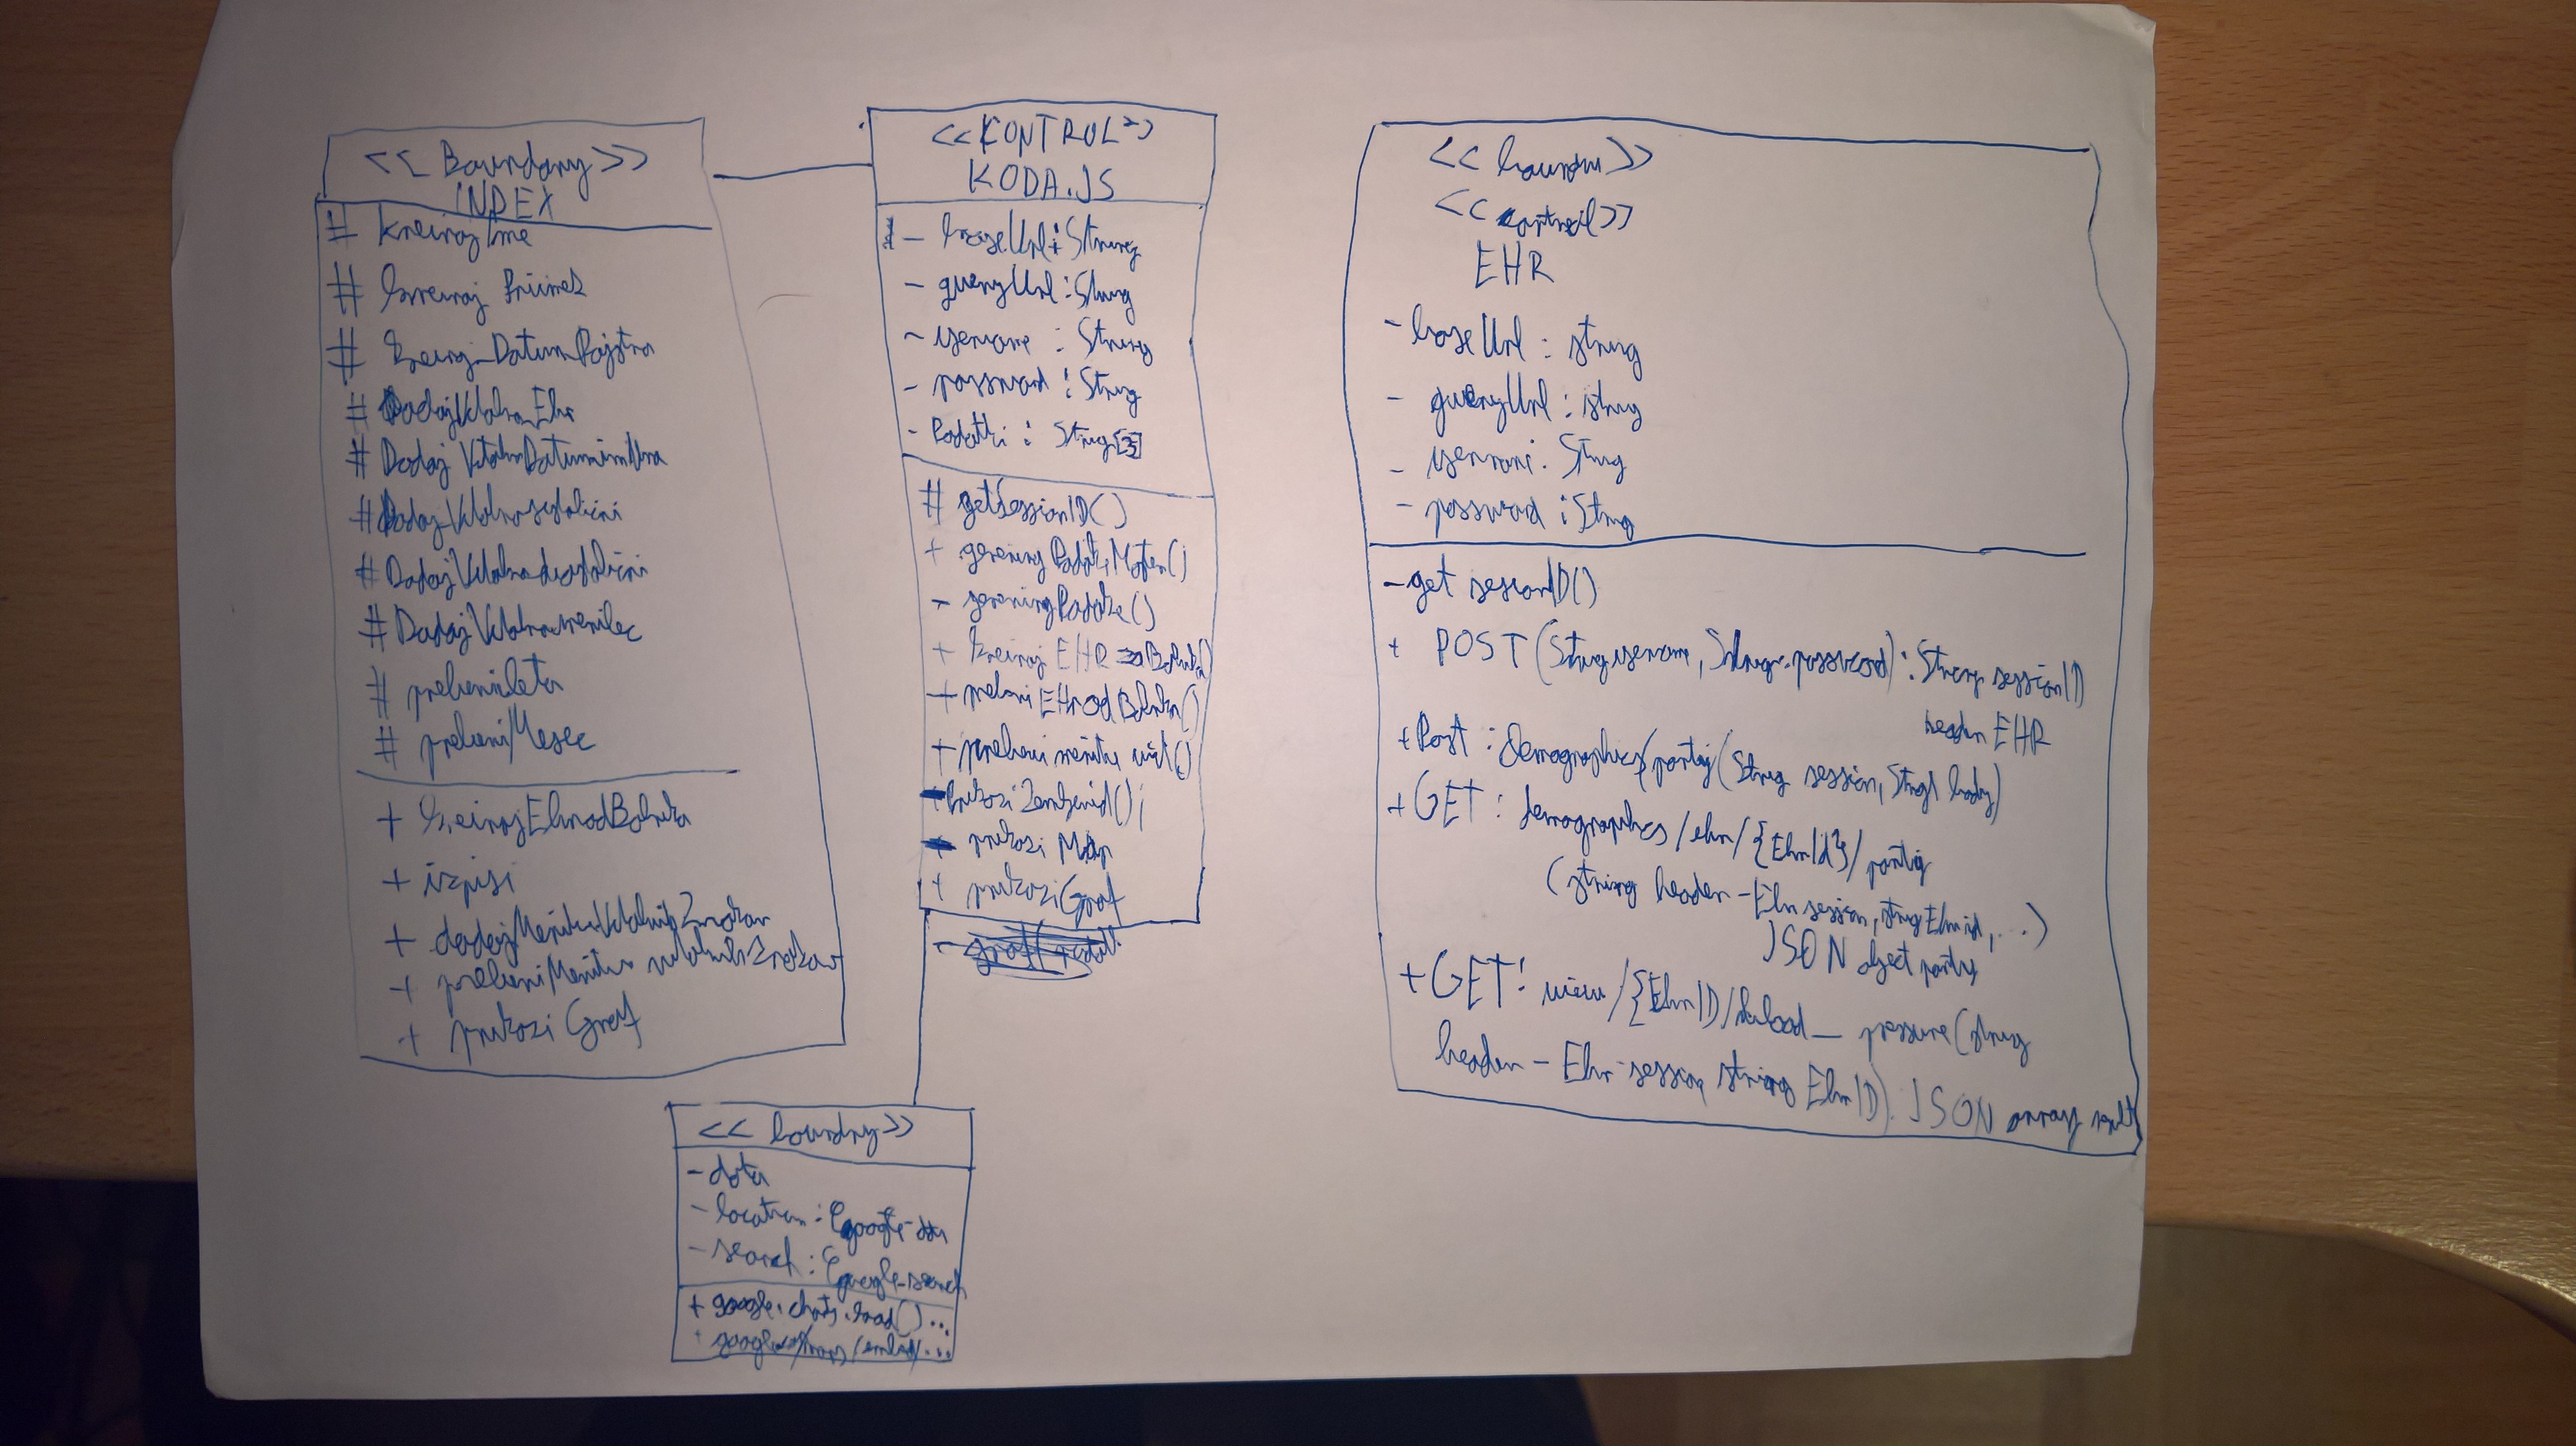 << Boundary >>
INDEX
# kreirajIme
# kreiraj Priimek
# DatumRojstva
# DodajVitalnoEhr
# DodajVitalnoDatumInUra
# DodajVitalno
# DodajVitalno
# DodajVitalnoMerilec
# preberiLeta
# preberiMesec
+ kreirajEhrodBolnika
+ izpisi
+ dodajMeritveVitalnihZnakov
+ preberiMeritve vitalnihZnakov
+ prikazi Graf
<<KONTROL>>
KODA.JS
- baseUrl: String
- queryUrl: String
- username : String
- password : String
- Podatki : String[3]
# getSessionID()
+ ()
- ()
+ kreiraj EHR Bolnika()
+ preberi EHR od Bolnika()
+ preberi meritve ()
+ prikazi ();
+ prikazi Map
+ prikazi Graf
<< boundry >>
- data
- location:
- search: google-search
+ google.charts.load()...
+ /maps/embed/...
<< >>
<< control >>
EHR
- baseUrl : string
- queryUrl : string
- : String
- password : String
- get sessionID()
+ POST (String username, String password) : String sessionID
header EHR
+ Post : Demographics/party (String session, String body)
+ GET : demographics/ehr/{EhrId}/party
(string header - Ehr session, string Ehrid, ...)
JSON object party
+ GET : view/{EhrID/ pressure (string
header - Ehr-session, string EhrID). JSON array result